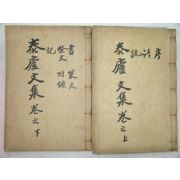 泰廬文集 卷之上
序 詩 疏
泰廬文集 卷之下
書 祭文 記 附錄